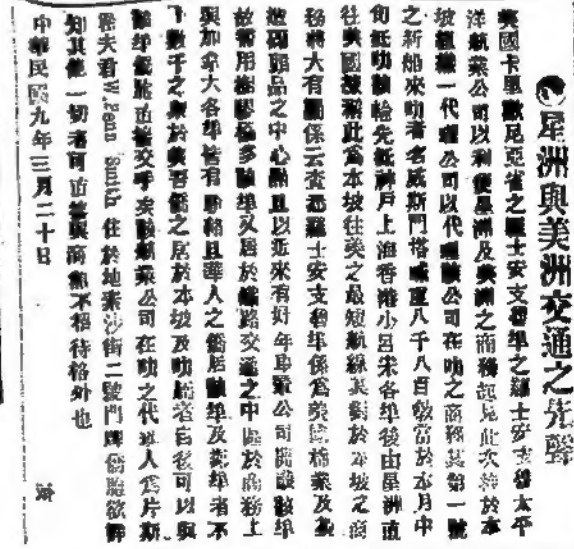 星洲與美洲交通之先聲
美國卡里歐尼亞省之羅士安支礜埠之羅士安支礜太平
洋航業公司以利便星洲及美洲之商務起見此次特於本
坡組織一代理公司以代理該公司在叻之商務其第一號
之新船來叻者名威斯門塔噸重八千八百敦當於本月中
旬抵叻該輪先抵神戶上海香港小呂宋各埠後由星洲直
往美國據稱此為本坡往美之最短航線其對於本坡之商
務將大有關係云查悉羅士安支礜埠係為美 棉業及
品之中心點且以近來有好年 公司 設該埠
故需用樹膠極多該埠又居於鐵路交通之中 於商務上
與加拿大各埠皆有聯絡且華人之僑居該埠及就埠者不
下數千之眾於是吾僑之居於本坡及叻 者自後可以與
該埠僑胞直接交手矣該航業公司在叻之代理人為片斯
君 住於地素沙街二號門牌僑胞欲詳
知其他一切者可直接與商無不招待格外也
中華民國九年三月二十日